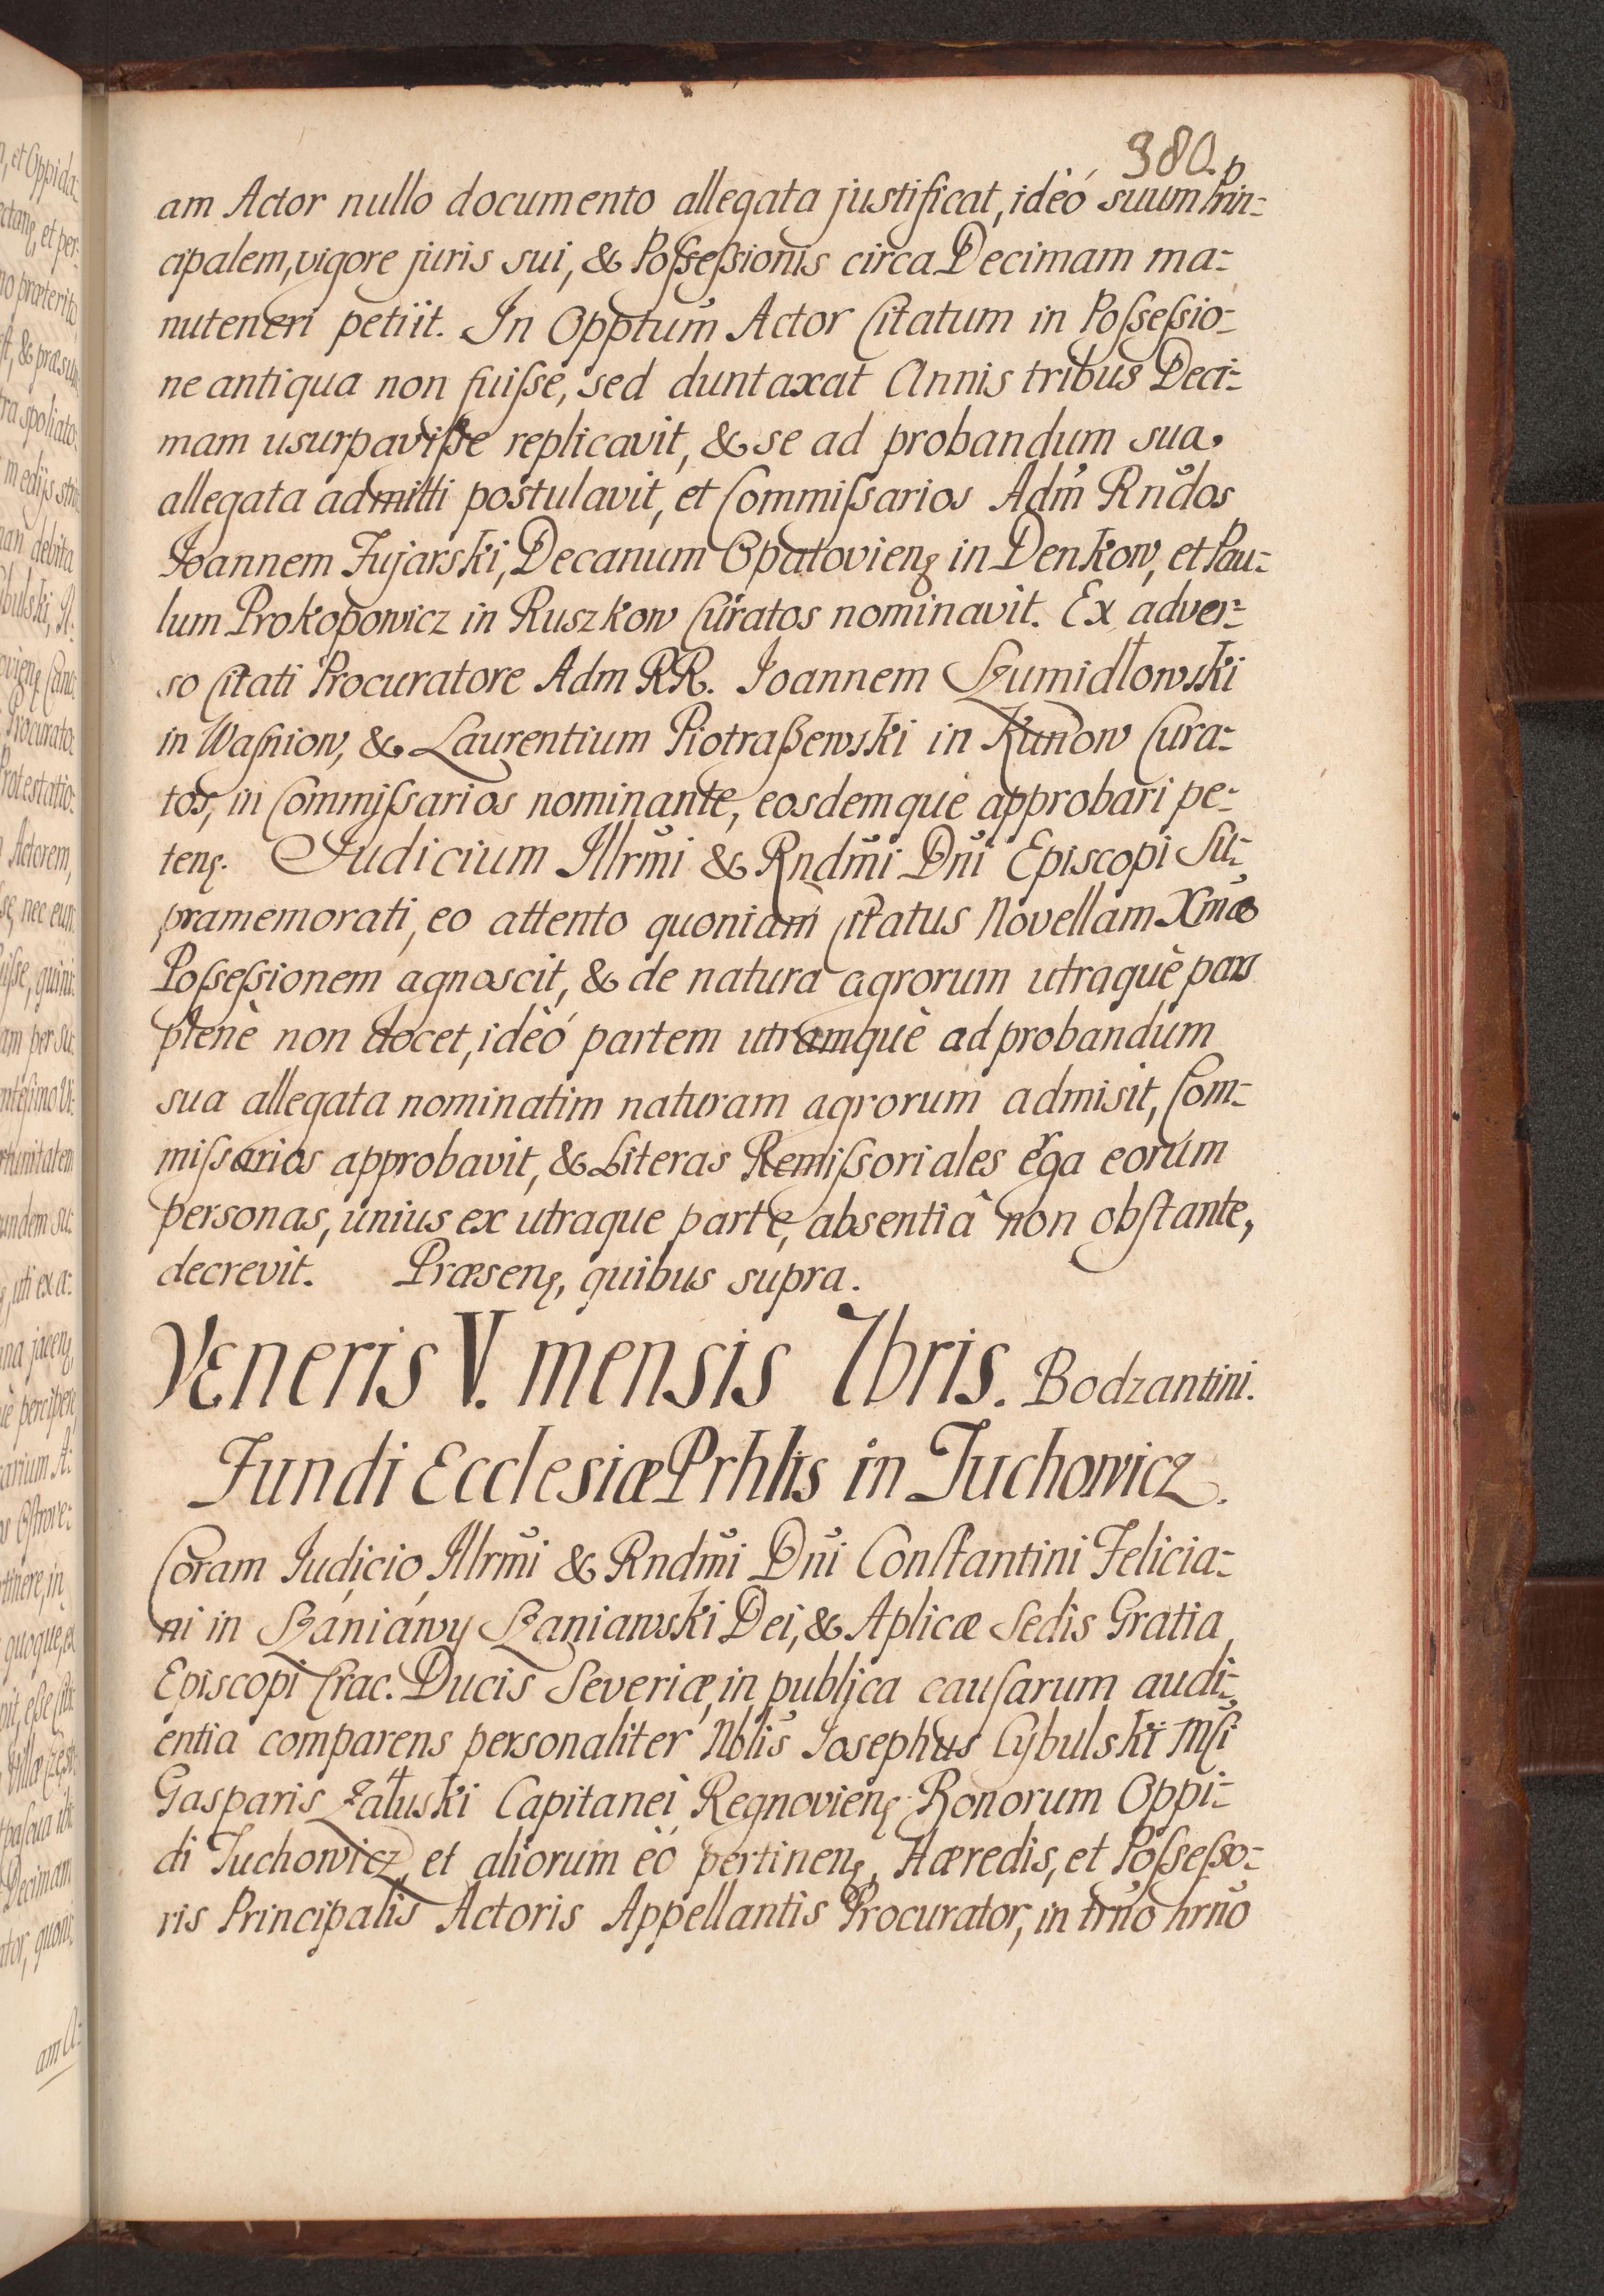 380.
am Actor nullo documento allegata justificat, ideò suum Prin=
cipalem, vigore juris sui, & Possessionis circa Decimam ma=
nuteneri petiit. In Opptum Actor Citatum in Possessio=
ne antiqua non fuisse, sed duntaxat Annis tribus Deci=
mam usurpavisse replicavit, & se ad probandum sua
allegata admitti postulavit, et Commissarios Adm Rndos
Ioannem Fujarski, Decanum Opatovienę in Denkow, et Pau=
lum Prokopowicz in Ruszkow Curatos nominavit. Ex adver=
so Citati Procuratore Adm RR. Ioannem Szumidłowski
in Wasniow, & Laurentium Piotraßewski in Kunow Cura=
tos, in Commissarios nominante, eosdemquè approbari pe=
tenę. Iudicium Illrmi & Rndmi Dni Episcopi Su=
pramemorati, eo attento quoniam Citatus Novellam Xmæ
Possessionem agnoscit, & de natura agrorum utraquè pars
plenè non docet, ideò partem utramquè ad probandum
sua allegata nominatim naturam agrorum admisit, Com=
missarios approbavit, & Literas Remissoriales erga eorum
personas, unius ex utraque parte, absentiâ non obstante,
decrevit. Præsenę, quibus supra.
Veneris V. mensis 7bris. Bodzantini.
Fundi Ecclesiæ Prhlis in Tuchowicz.
Coram Iudicio Illrmi & Rndmi Dni Constantini Felicia=
ni in Szániáwy Szaniawski Dei, & Aplicæ Sedis Gratia
Episcopi Crac. Ducis Severiæ, in publica causarum audi=
entia comparens personaliter Nblis Iosephus Cybulski Msi
Gasparis Załuski Capitanei Regnovienę Bonorum Oppi=
di Tuchowicz, et aliorum eò pertinenę, Hæredis, et Possesso=
ris Principalis Actoris Appellantis Procurator, in trno hrno